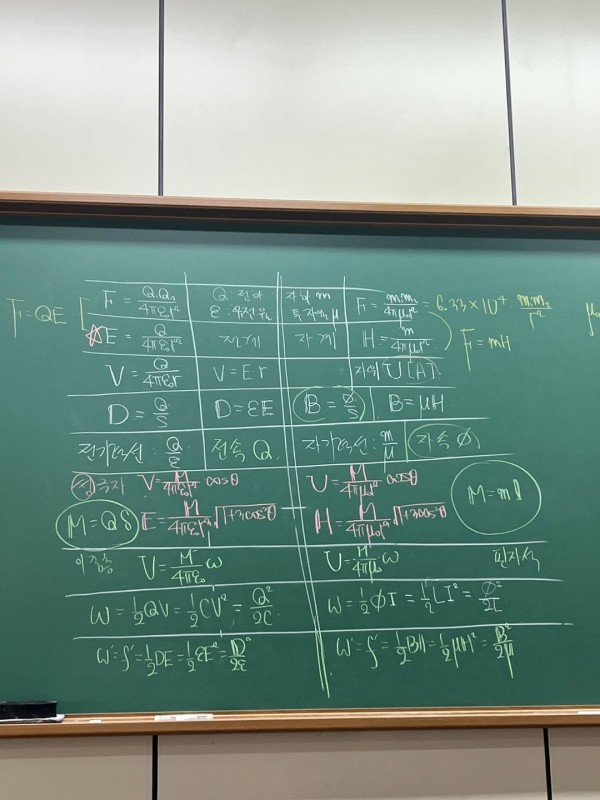 F=QE [ F = Q₁Q₂/4πεr² Q: 전하 ε: 유전율 자하 m 투자율 μ F = m₁m₂/4πμ₀r² = 6.33×10⁴ m₁m₂/r²
☆E = Q/4πεr² 전계 자계 H = m/4πμ₀r² F=mH
V = Q/4πεr V=Er 자위 U[A]
D = Q/S D=εE B = ø/S B=μH
전기력선: Q/ε 전속 Q 자기력선: m/μ 자속 ø
쌍극자 V = M/4πεr² cosθ U = M/4πμ₀r² cosθ
M=Qδ E = M/4πεr³ √1+3cos²θ H = M/4πμ₀r³ √1+3cos²θ M=ml
이중층 V = M/4πε₀ ω U = M/4πμ₀ ω 판자석
W = ½QV = ½CV² = Q²/2C W = ½øI = ½LI² = ø²/2L
W'=f'=½DE=½εE²=D²/2ε W'=f'=½BH=½μH²=B²/2μ